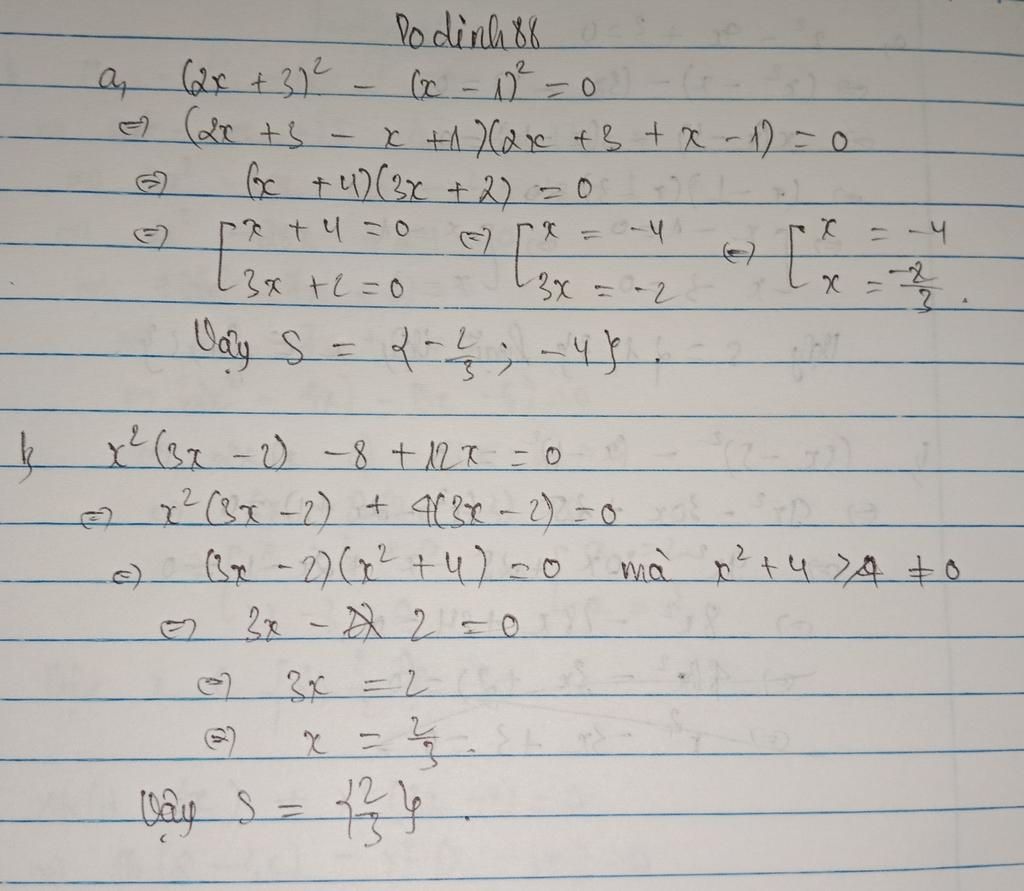 Dodinh88
a, (2x + 3)² - (x - 1)² = 0
⇔ (2x + 3 - x + 1)(2x + 3 + x - 1) = 0
⇔ (x + 4)(3x + 2) = 0
⇔ [ x + 4 = 0 ⇔ [ x = -4 ⇔ [ x = -4
3x + 2 = 0 3x = -2 x = -2/3 .
Vậy S = {-2/3; -4} .
b, x²(3x - 2) - 8 + 12x = 0
⇔ x²(3x - 2) + 4(3x - 2) = 0
⇔ (3x - 2)(x² + 4) = 0 mà x² + 4 ≥ 4 ≠ 0
⇔ 3x - 2 = 0
⇔ 3x = 2
⇔ x = 2/3 .
Vậy S = {2/3} .